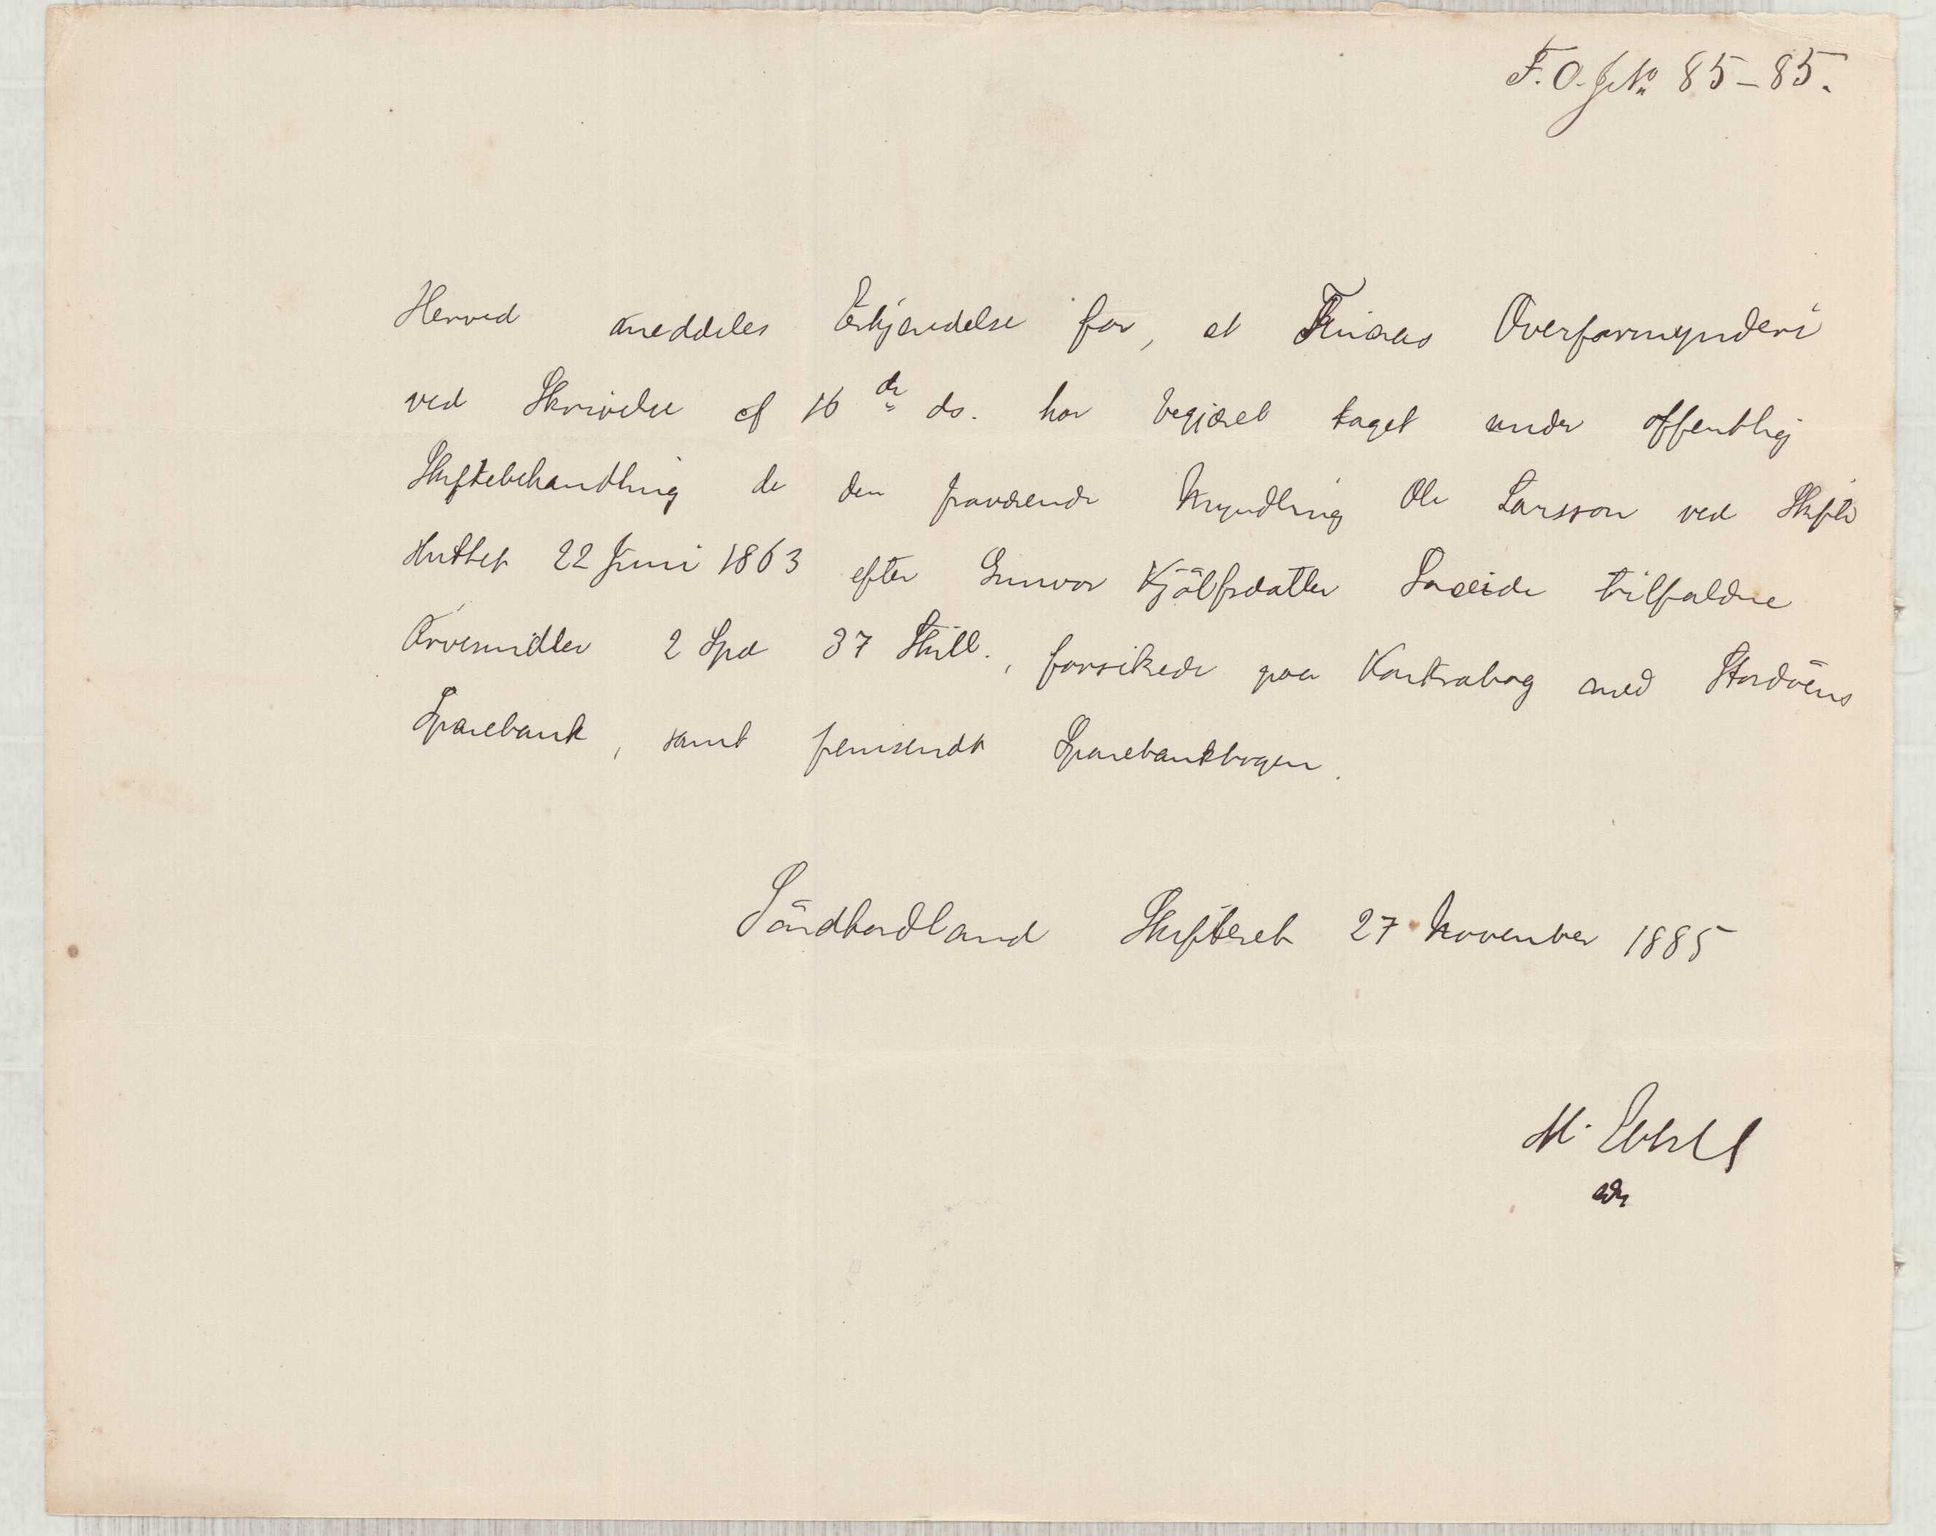 F. O. J№ 85–85.
Herved meddeles Erkjendelse for, at Finaas Overformynderi
ved Skrivelse af 16de ds. har begjæret taget under offentlig
Skiftebehandling de den fraværende Myndling Ole Larsson ved Skifte
sluttet 22 Juni 1863 efter Gunvor Kjölfsdatter tilfaldne
Arvemidler 2 Spd 37 Skill., forsikrede paa Kontrabog med Stordöens
Sparebank, samt fremsendt Sparebankbogen.
Söndhordland Skifteret 27 November 1885
M.